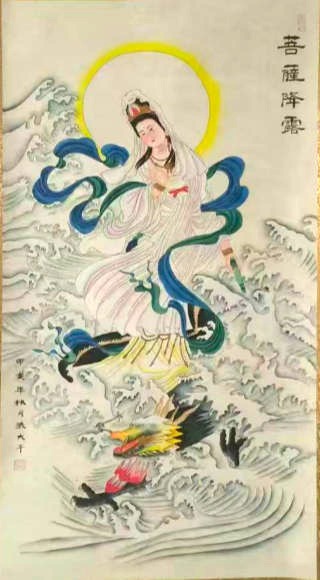 菩薩降露
甲寅年秋月張大千